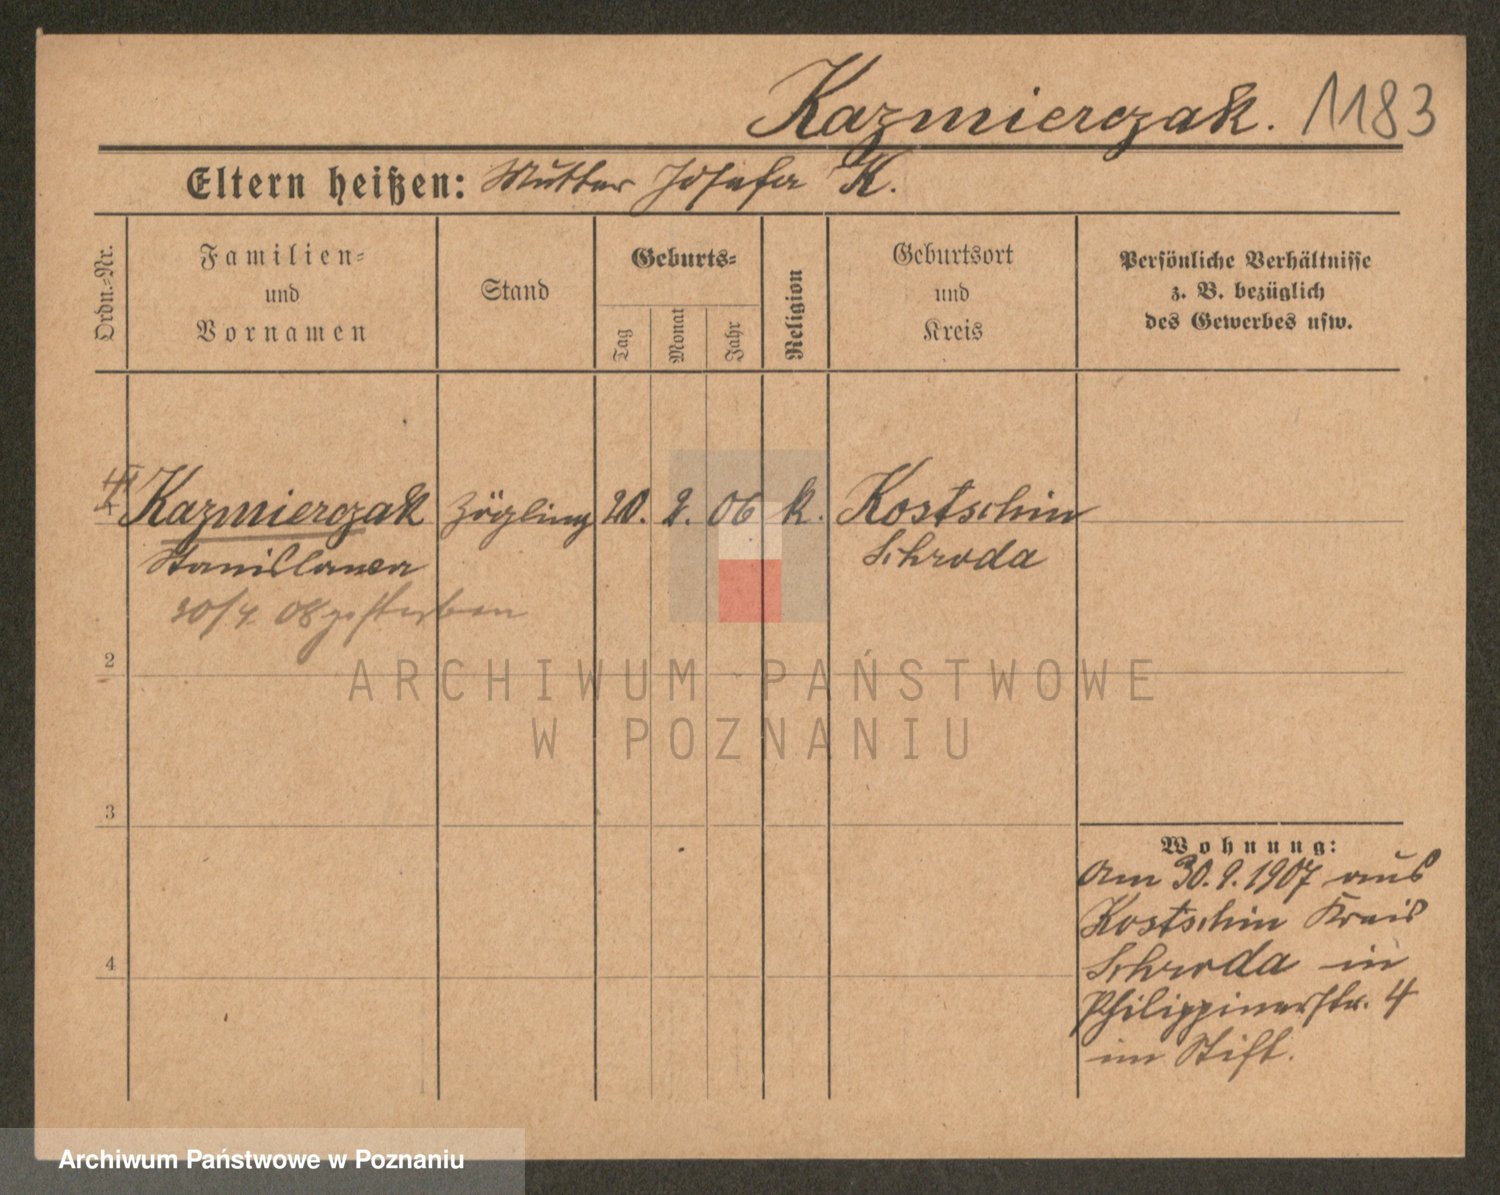 Kazmierczak. 1183
Eltern heißen: Mutter Josefa K.
Ordn.-Nr.
Familien-
und
Vornamen
Stand
Geburts-
Tag
Monat
Jahr
Religion
Geburtsort
und
Kreis
Persönliche Verhältnisse
z. B. bezüglich
des Gewerbes usw.
Kazmierczak Zögling 20. 2. 06 k. Kostschin
Stanislawa Schroda
30/4 08 gestorben
2
ARCHIWUM PAŃSTWOWE
W POZNANIU
3
Wohnung:
Am 30.9.1907 aus
Kostschin Kreis
4
Schroda in
Philippinerstr. 4
im Stift.
Archiwum Państwowe w Poznaniu